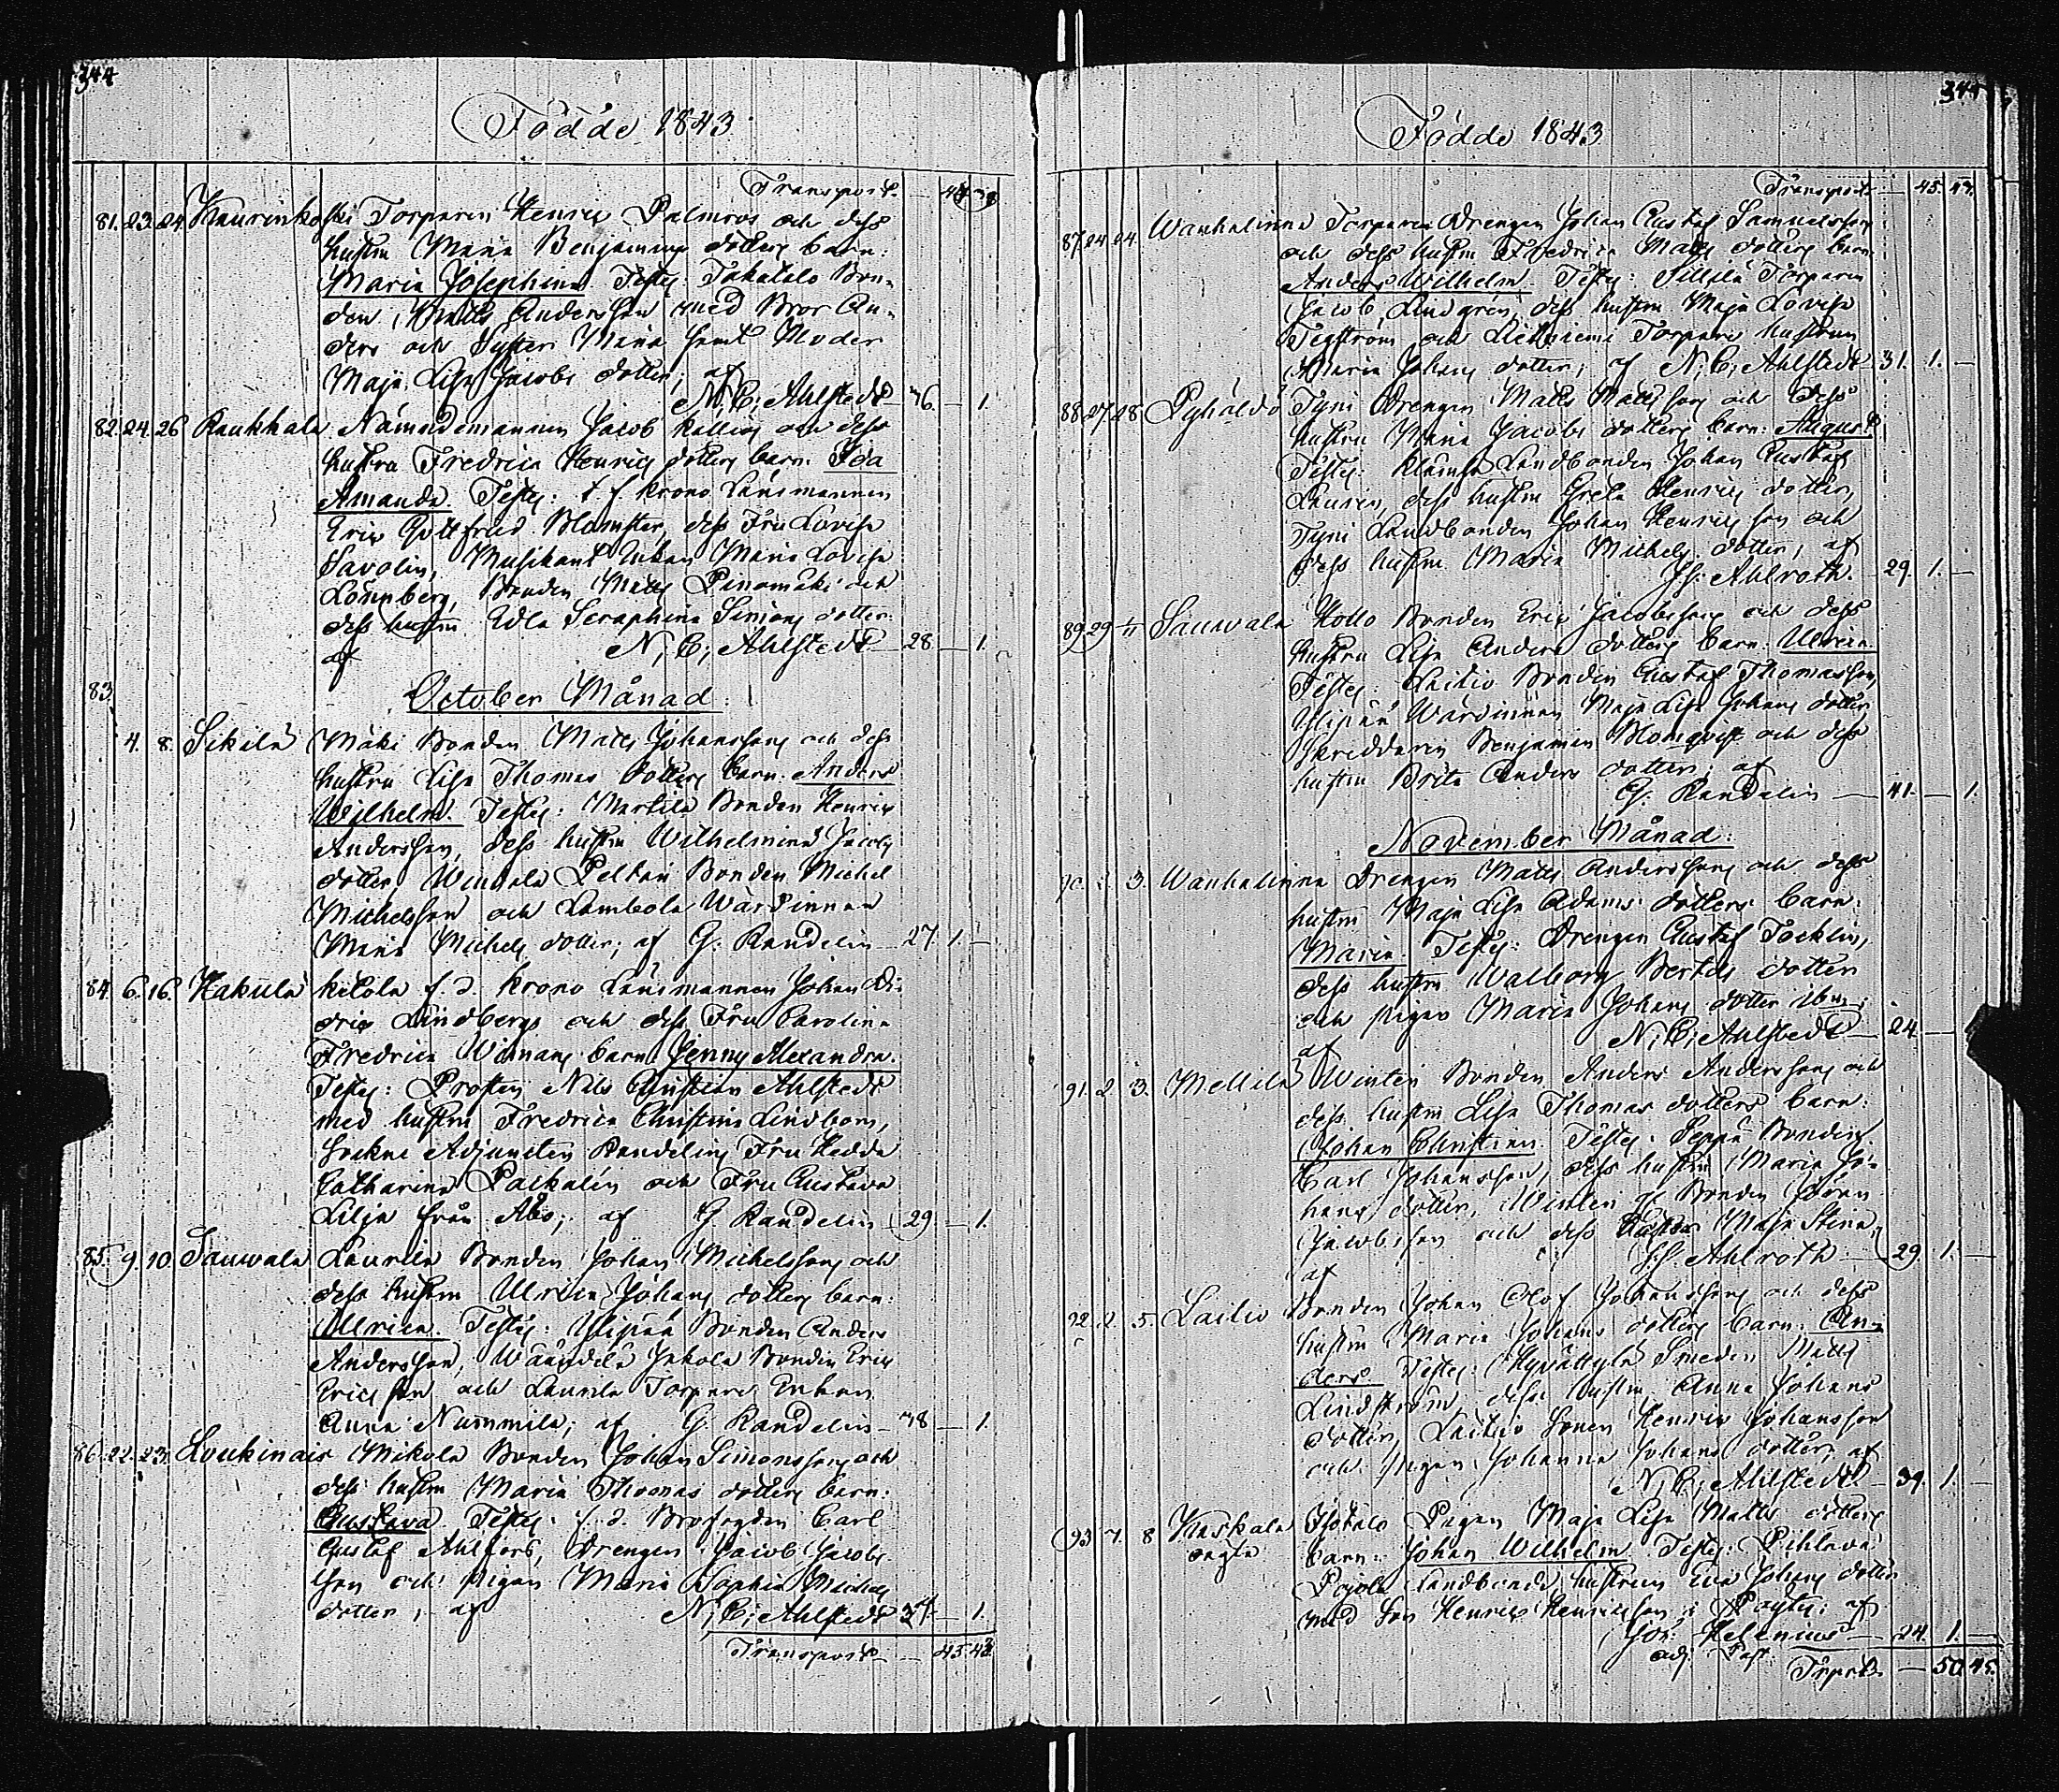 344
Födde 1843
Transport. 44 38
81. 23. 24. Kaurinkoski Torparen Henric Palmros och dess
hustru Maria Benjamins dotters barn:
Maria Josephina. Testes: Takatalo Bon-
den Matts Andersson med Bror An-
ders och Syster Maria samt Moder
Maja Lisa Jacobs dotter; af
N. C. Ahlstedt 46. — 1.
82. 24. 26 Raukkala Nämndemannen Jacob Källies och dess
hustru Fredrica Henrics dotters barn: Ida
Amanda. Testes: t. f. Krono Länsmannen
Eric Gottfried Blomster, dess Fru Lovisa
Savolin, Musikant Enkan Maria Lovisa
Lönnberg, Bonden Matts Penamäki och
dess hustru Edla Seraphina Simons dotter.
af N. C. Ahlstedt 28 — 1.
83.
October Månad.
4. 8. Sikilä Mäki Bonden Matts Johanssons och dess
hustru Lisa Thomas dotters barn: Anders
Wilhelm. Testes: Markila Bonden Henric
Andersson, dess hustru Wilhelmina Jacobs
dotter, Winnala Peltari Bonden Michel
Michelsson och Lambola Wärdinnan
Maria Michels dotter; af G. Randelin 27. 1. —
84. 6. 16. Hakula Kilola f. d. Krono Länsmannen Johan Di-
dric Lindbergs och dess Fru Carolina
Fredrica Wimans barn Jenny Alexandra.
Testes: Prosten Nils Christian Ahlstedt
med hustru Fredrica Christina Lindbom,
Sockne Adjuncten Randelins Fru Hedda
Catharina Packalén och Fru Gustava
Lilja från Åbo; af G. Randelin 29 — 1.
85. 9. 10. Sauwala Laurila Bonden Johan Michelssons och
dess hustru Ulrica Johans dotters barn:
Ulrica. Testes: Ylipää Bonden Anders
Andersson, Wäändelä Jakola Bonden Eric
Ericsson och Laurila Torpare Enkan
Anna Nummila; af G. Randelin 48 — 1.
86. 22. 23. Loukinais Mikola Bonden Johan Simonssons och
dess hustru Maria Thomas dotters barn:
Gustava Testes: f. d. Brofogden Carl
Gustaf Ahlfors, Drengen Jacob Jacobs-
son och Pigan Maria Sophia Michels
dotter; af N. C. Ahlstedt 34 — 1.
Transport — 45. 43.
344
Födde 1843
Transport — 45. 43.
87. 24. 24. Wanhalinna Torparen Drengen Johan Gustaf Samuelssons
och dess hustru Fredrica Matts dotters barn
Anders Wilhelm. Testes: Sillilä Torparen
Jacob Lindgren, dess hustru Maja Lovisa
Tegström och Torpare hustrun
Maria Johans dotter; af N. C. Ahlstedt 31. 1. —
88. 27. 28. Pyhäldö Tyni Drengen Matts Mattssons och Dess
hustru Maria Jacobs dotters barn: August
Testes: Klämsi Landbonden Johan Gustaf
Laurin, dess hustru Greta Henrics dotter,
Tyni Landbonden Johan Henricsson och
dess hustru Maria Michels dotter; af
J. Ahlroth. 29. 1. —
89. 29 1/11 Sauwala Hollo Bonden Eric Jacobssons och dess
hustru Lisa Anders dotters barn: Ulrica.
Testes: Laitio Bonden Gustaf Thomasson,
Ylipää Wärdinnan Maja Lisa Johans dotter
Skräddaren Benjamin Blomqvist och dess
hustru Brita Anders dotter; af
G. Randelin 41. — 1.
November Månad.
90. 2. 3. Wanhalinna Drengen Matts Anderssons och dess
hustru Maja Lisa Adams dotters barn:
Maria. Testes: Drengen Gustaf Tocklin,
dess hustru Walborg Bertils dotter
och Pigan Maria Johans dotter ibm;
af N. C. Ahlstedt 24 —
91. 2. 3. Mellilä Winten Bonden Anders Anderssons och
dess hustru Lisa Thomas dotters barn:
Johan Christian. Testes: Seppä Bonden
Carl Johansson, dess hustru Maria Jo-
hans dotter, Winten Bonden Göran
Jacobsson och dess hustru Maja Stina;
af J. Ahlroth 29. 1. —
92. 2. 5. Laitio Bonden Johan Olof Johanssons och dess
hustru Maria Johans dotters barn: An-
ders. Testes: Hyvättylä Smeden Matts
Lindström, dess hustru Anna Johans
dotter, Laitio Sonen Henric Johansson
och Pigan Johanna Johans dotter; af
N. C. Ahlstedt 39. 1. —
93 7. 8 Keskala Isotalo Pigan Maja Lisa Matts dotters
oägta barn: Johan Wilhelm Testes: Pihlava
Pajola Landbonde hustrun Eva Johans dotter
med Son Henric Henricsson i Pöytis; af
Joh. Helenius 24. 1. —
adj. Past.
Trprt. — 50. 45.